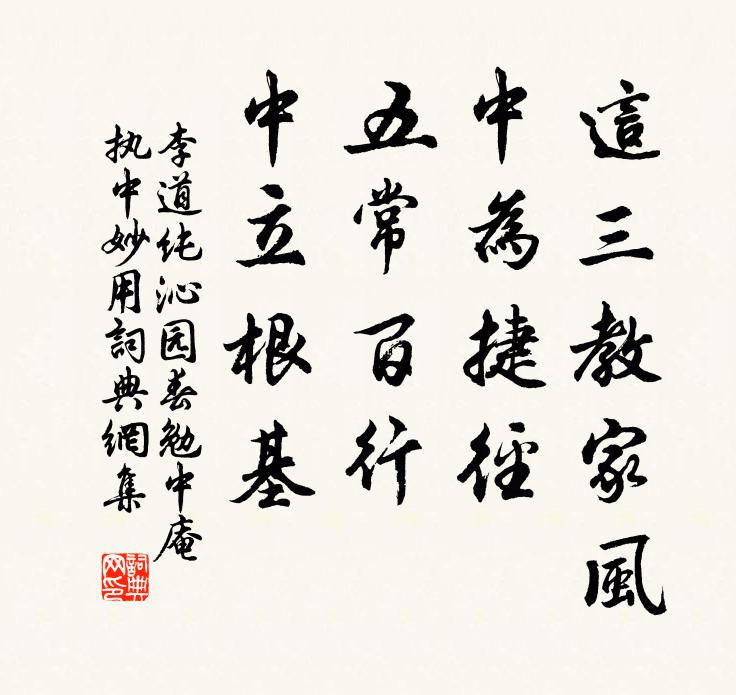 這三教家風
中為捷徑
五常百行
中立根基
李道纯沁园春勉中庵
执中妙用詞典網集
詞典网印